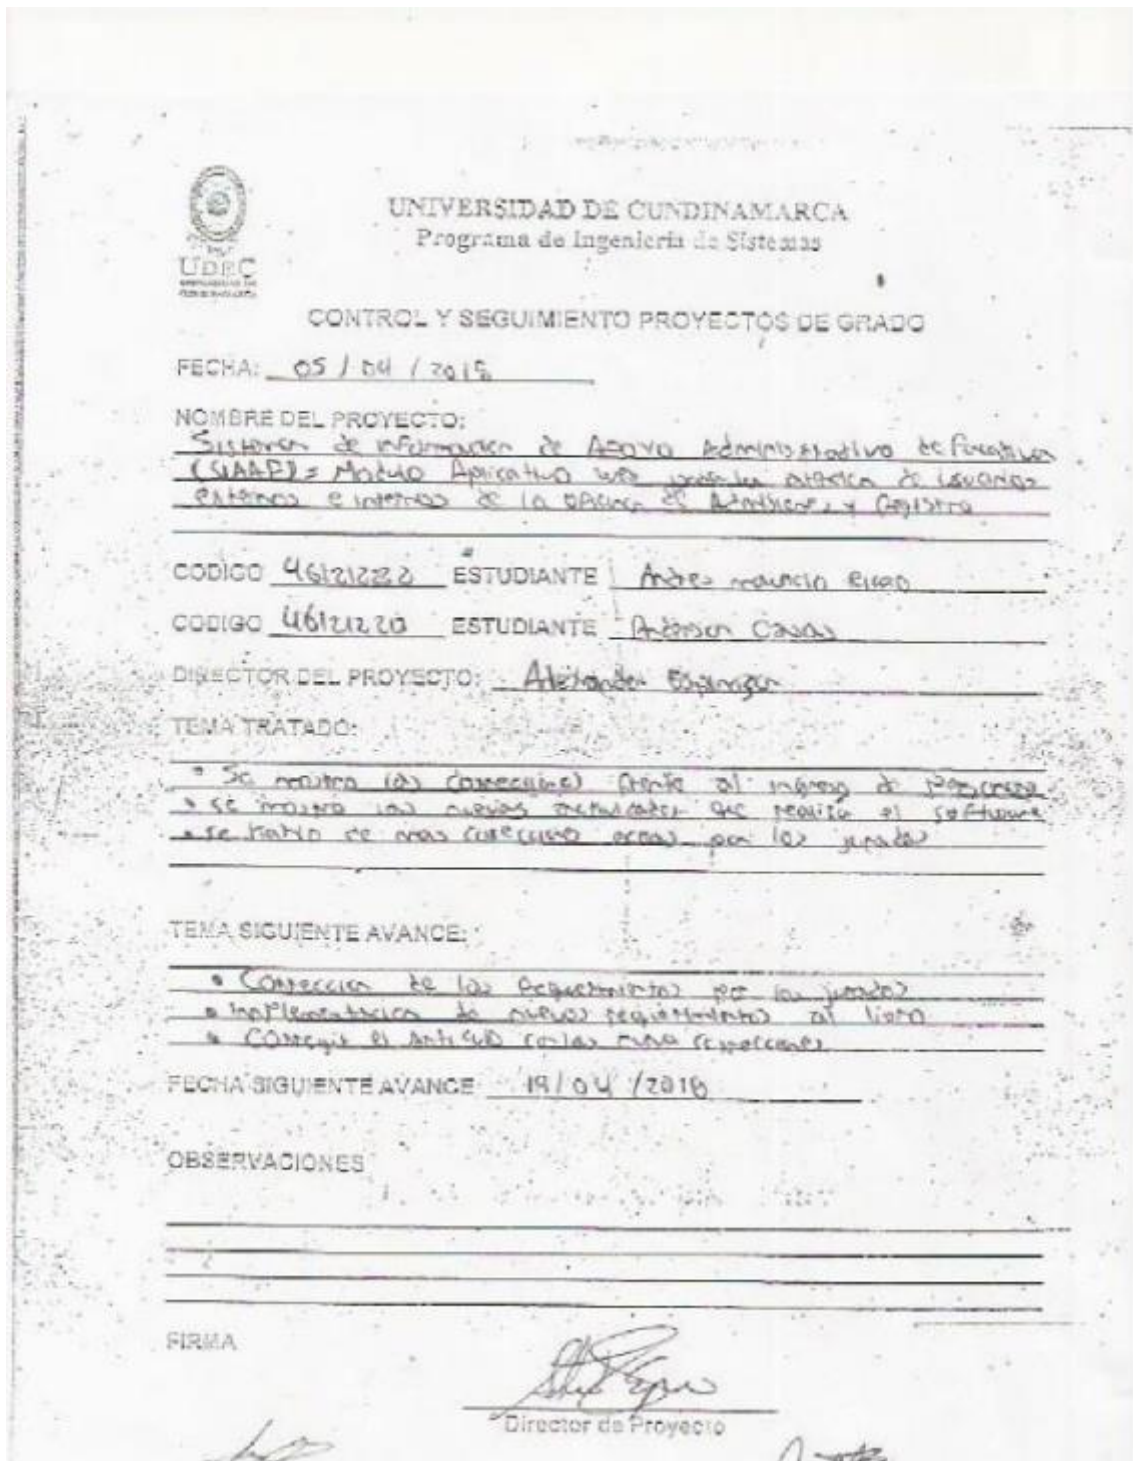 UNIVERSIDAD DE CUNDINAMARCA
Programa de Ingeniería de Sistemas
UDEC
CONTROL Y SEGUIMIENTO PROYECTOS DE GRADO
FECHA: 05 / 04 / 2018
NOMBRE DEL PROYECTO:
Sistema de información de Apoyo Administrativo de
(SIAAF): Modulo Aplicativo web para la atención de usuarios
externos e internos de la oficina de Admisiones y Registro
CODIGO ESTUDIANTE Andres mauricio
CODIGO 46121220 ESTUDIANTE Anderson Casas
DIRECTOR DEL PROYECTO: Alexander Espinosa
TEMA TRATADO:
• Se mostro las correcciones frente al ingreso de
• se mostro las nuevas que realiza el software
• se hablo de mas por los jurados
TEMA SIGUIENTE AVANCE:
• Correccion de los Requerimientos por los jurados
• Implementacion de nuevos requerimientos al libro
• Corregir el articulo con las correcciones
FECHA SIGUIENTE AVANCE 19/04/2018
OBSERVACIONES
FIRMA
Director de Proyecto